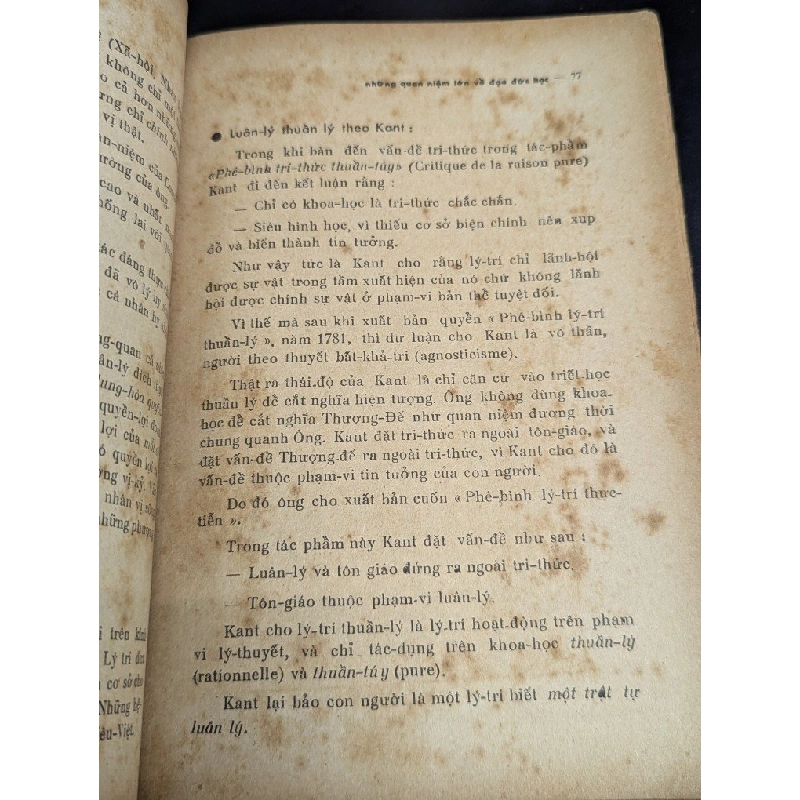 (Xã-hội, Nhân
không chỉ một
cả hơn những
chỉ chính
vị thật.
niệm của
tưởng của ông
cao và nhất
lại với
tác đáng
đã vô lý
cá nhân
quan cá
lý diễn
dung-hòa
quyền-lợi
lợi của mỗi
quyền lợi
vị-kỷ.
nhân vị
những phương
trên
Lý trí
cơ sở cho
Những
Việt.
những quan niệm lớn về đạo đức học — 77
● Luân-lý thuần lý theo Kant :
Trong khi bàn đến vấn-đề tri-thức trong tác-phẩm
«Phê-bình tri-thức thuần-túy» (Critique de la raison pure)
Kant đi đến kết luận rằng :
— Chỉ có khoa-học là tri-thức chắc chắn.
— Siêu hình học, vì thiếu cơ sở biện chính nên xụp
đổ và biến thành tin tưởng.
Như vậy tức là Kant cho rằng lý-trí chỉ lãnh-hội
được sự vật trong tầm xuất hiện của nó chứ không lãnh
hội được chính sự vật ở phạm-vi bản thể tuyệt đối.
Vì thế mà sau khi xuất bản quyển « Phê-bình lý-trí
thuần-lý », năm 1781, thì dư luận cho Kant là vô thần,
người theo thuyết bất-khả-tri (agnosticisme).
Thật ra thái-độ của Kant là chỉ căn cứ vào triết-học
thuần lý để cắt nghĩa hiện tượng. Ông không dùng khoa-
học để cắt nghĩa Thượng-Đế như quan niệm đương thời
chung quanh Ông. Kant đặt tri-thức ra ngoài tôn-giáo, và
đặt vấn-đề Thượng-đế ra ngoài tri-thức, vì Kant cho đó là
vấn-đề thuộc phạm-vi tin tưởng của con người.
Do đó ông cho xuất bản cuốn « Phê-bình lý-trí thực-
tiễn ».
Trong tác phẩm này Kant đặt vấn-đề như sau :
— Luân-lý và tôn giáo đứng ra ngoài tri-thức.
— Tôn-giáo thuộc phạm-vi luân-lý.
Kant cho lý-trí thuần-lý là lý-trí hoạt-động trên phạm
vi lý-thuyết, và chỉ tác-dụng trên khoa-học thuần-lý
(rationnelle) và thuần-túy (pure).
Kant lại bảo con người là một lý-trí biết một trật tự
luân lý.